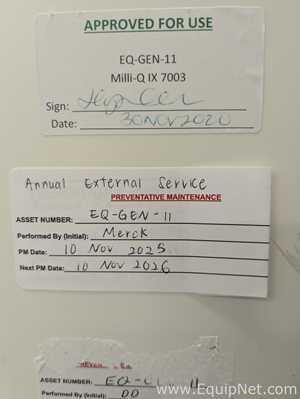 APPROVED FOR USE
EQ-GEN-11
Milli-Q IX 7003
Sign:
Date: 30NOV2020
Annual External Service
PREVENTATIVE MAINTENANCE
ASSET NUMBER: EQ-GEN-11
Performed By (Initial): Merck
PM Date: 10 Nov 2025
Next PM Date: 10 Nov 2026
ASSET NUMBER:
Performed By (Initial): DO
EquipNet.com